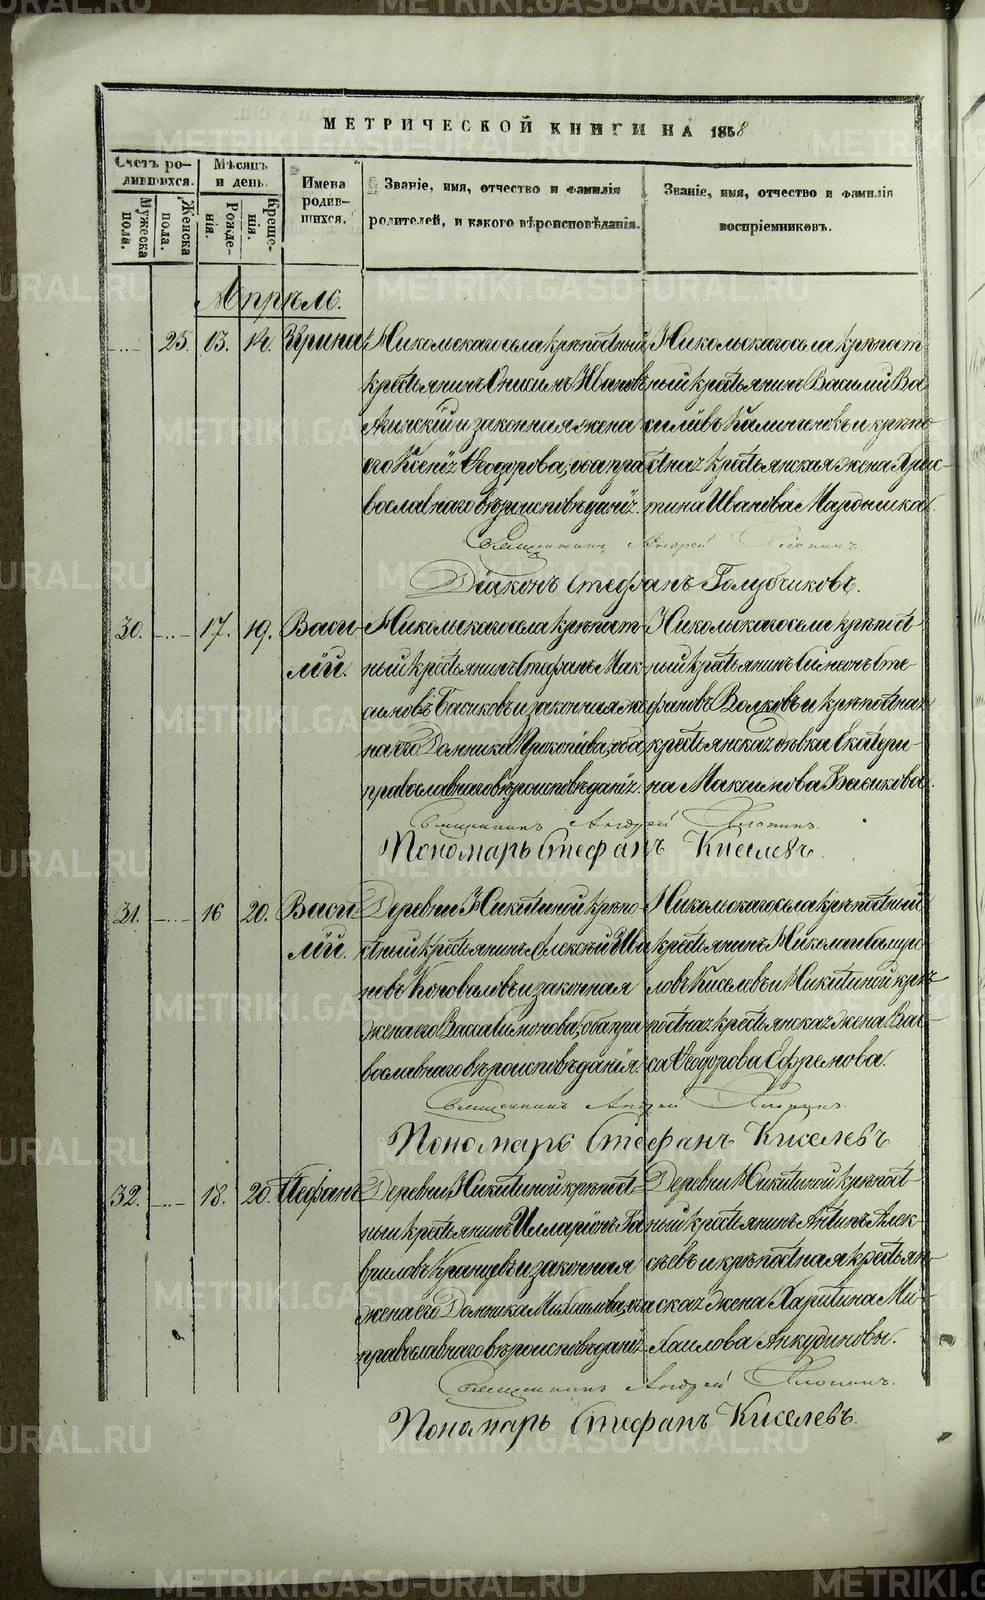 МЕТРИЧЕСКОЙ КНИГИ НА 1858
Счетъ ро-
дившихся.
Мужеска
пола.
Женска
пола.
Мѣсяцъ
и день.
Рожде-
нія.
Креще-
нія.
Имена
родив-
шихся.
Званіе, имя, отчество и фамилія
родителей, и какого вѣроисповѣданія.
Званіе, имя, отчество и фамилія
воспріемниковъ.
Апрѣль.
25. 13. 14. Ирина
Никольскаго села крѣпостный
крестьянинъ Онисимъ Ивановъ
и законная жена
его Ксенія Ѳеодорова, оба пра
вославнаго вѣроисповѣданія.
Никольскаго села крѣпост
ный крестьянинъ Василій Ва
сильевъ и крѣпо
стная крестьянская жена Хрис
тина Иванова
Священникъ Андрей Хлопинъ.
Діаконъ Стефанъ Голубчиковъ.
30. 17. 19. Васи
лій.
Никольскаго села крѣпост
ный крестьянинъ Стефанъ Мак
симовъ Басиковъ и законная же
на его Домника Прокопіева, оба
православнаго вѣроисповѣданія.
Никольскаго села крѣпост
ный крестьянинъ Симеонъ Сте
фановъ Волковъ и крѣпостная
крестьянская дѣвка Екатери
на Максимова Басикова.
Священникъ Андрей Хлопинъ.
Пономарь Стефанъ Киселевъ.
31. 16 20. Васи
лій.
Деревни Никитиной крѣпо
стный крестьянинъ Алексѣй Ива
новъ Коноваловъ и законная
жена его Васса Симонова, оба пра
вославнаго вѣроисповѣданія.
Никольскаго села крѣпостный
крестьянинъ Николай
Киселевъ и Никитиной крѣ
постная крестьянская жена Вас
са Ѳеодорова Ефремова.
Священникъ Андрей Хлопинъ.
Пономарь Стефанъ Киселевъ
32. 18. 20. Стефанъ
Деревни Никитиной крѣпост
ный крестьянинъ Илларіонъ Га
вриловъ и законная
жена его Домника Михаилова, оба
православнаго вѣроисповѣданія.
Деревни Никитиной крѣпост
ный крестьянинъ Антипъ Алек
сѣевъ и крѣпостная крестьян
ская жена Харитина Ми
хаилова Анкудиновы.
Священникъ Андрей Хлопинъ.
Пономарь Стефанъ Киселевъ.
METRIKI.GASO-URAL.RU